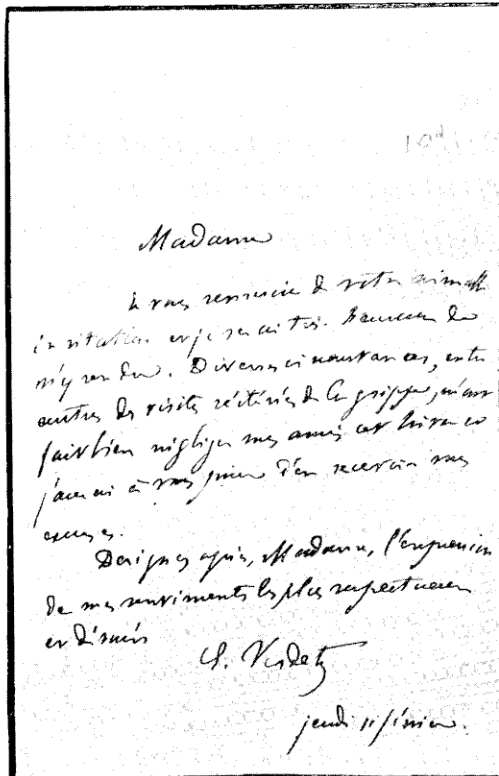 Madame
Je vous remercie de votre aimable
invitation et je serai très heureux de
m'y rendre. Diverses circonstances, entre
autres des visites réitérées de la grippe, m'ont
fait bien négliger mes amis cet hiver et
j'aurai à vous prier d'en recevoir mes
excuses.
Daignez agréer, Madame, l'expression
de mes sentiments les plus respectueux
et dévoués
jeudi 11 février.